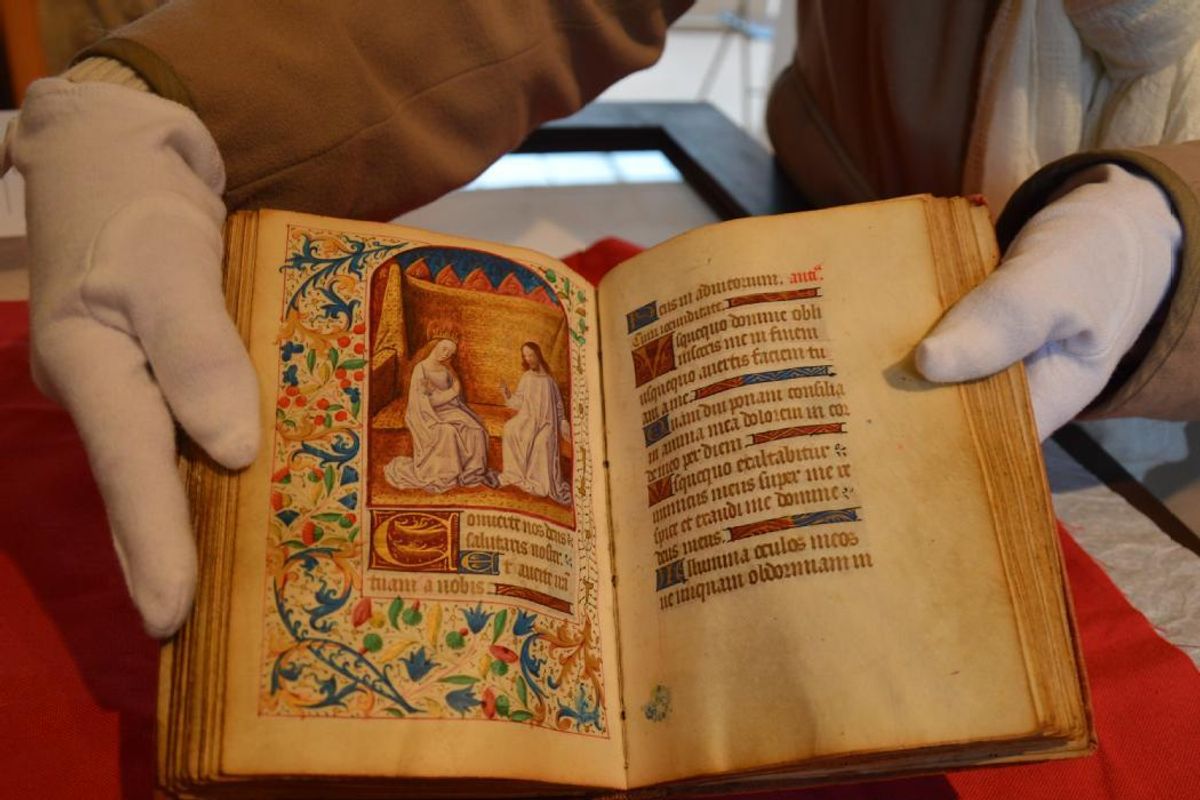 Conuerte nos deus
salutaris noster
Et auerte irã
tuam a nobis
Deus in adiutorium. anã.
Cum iocunditate.
Vsquequo domine obli
uisceris me in finem
usquequo auertis faciem tu
am a me
Quam diu ponam consilia
in anima meã dolorem in cor
de meo per diem
Vsquequo exaltabitur
inimicus meus super me re
spice et exaudi me domine
deus meus.
Illumina oculos meos
ne umquam obdormiam in